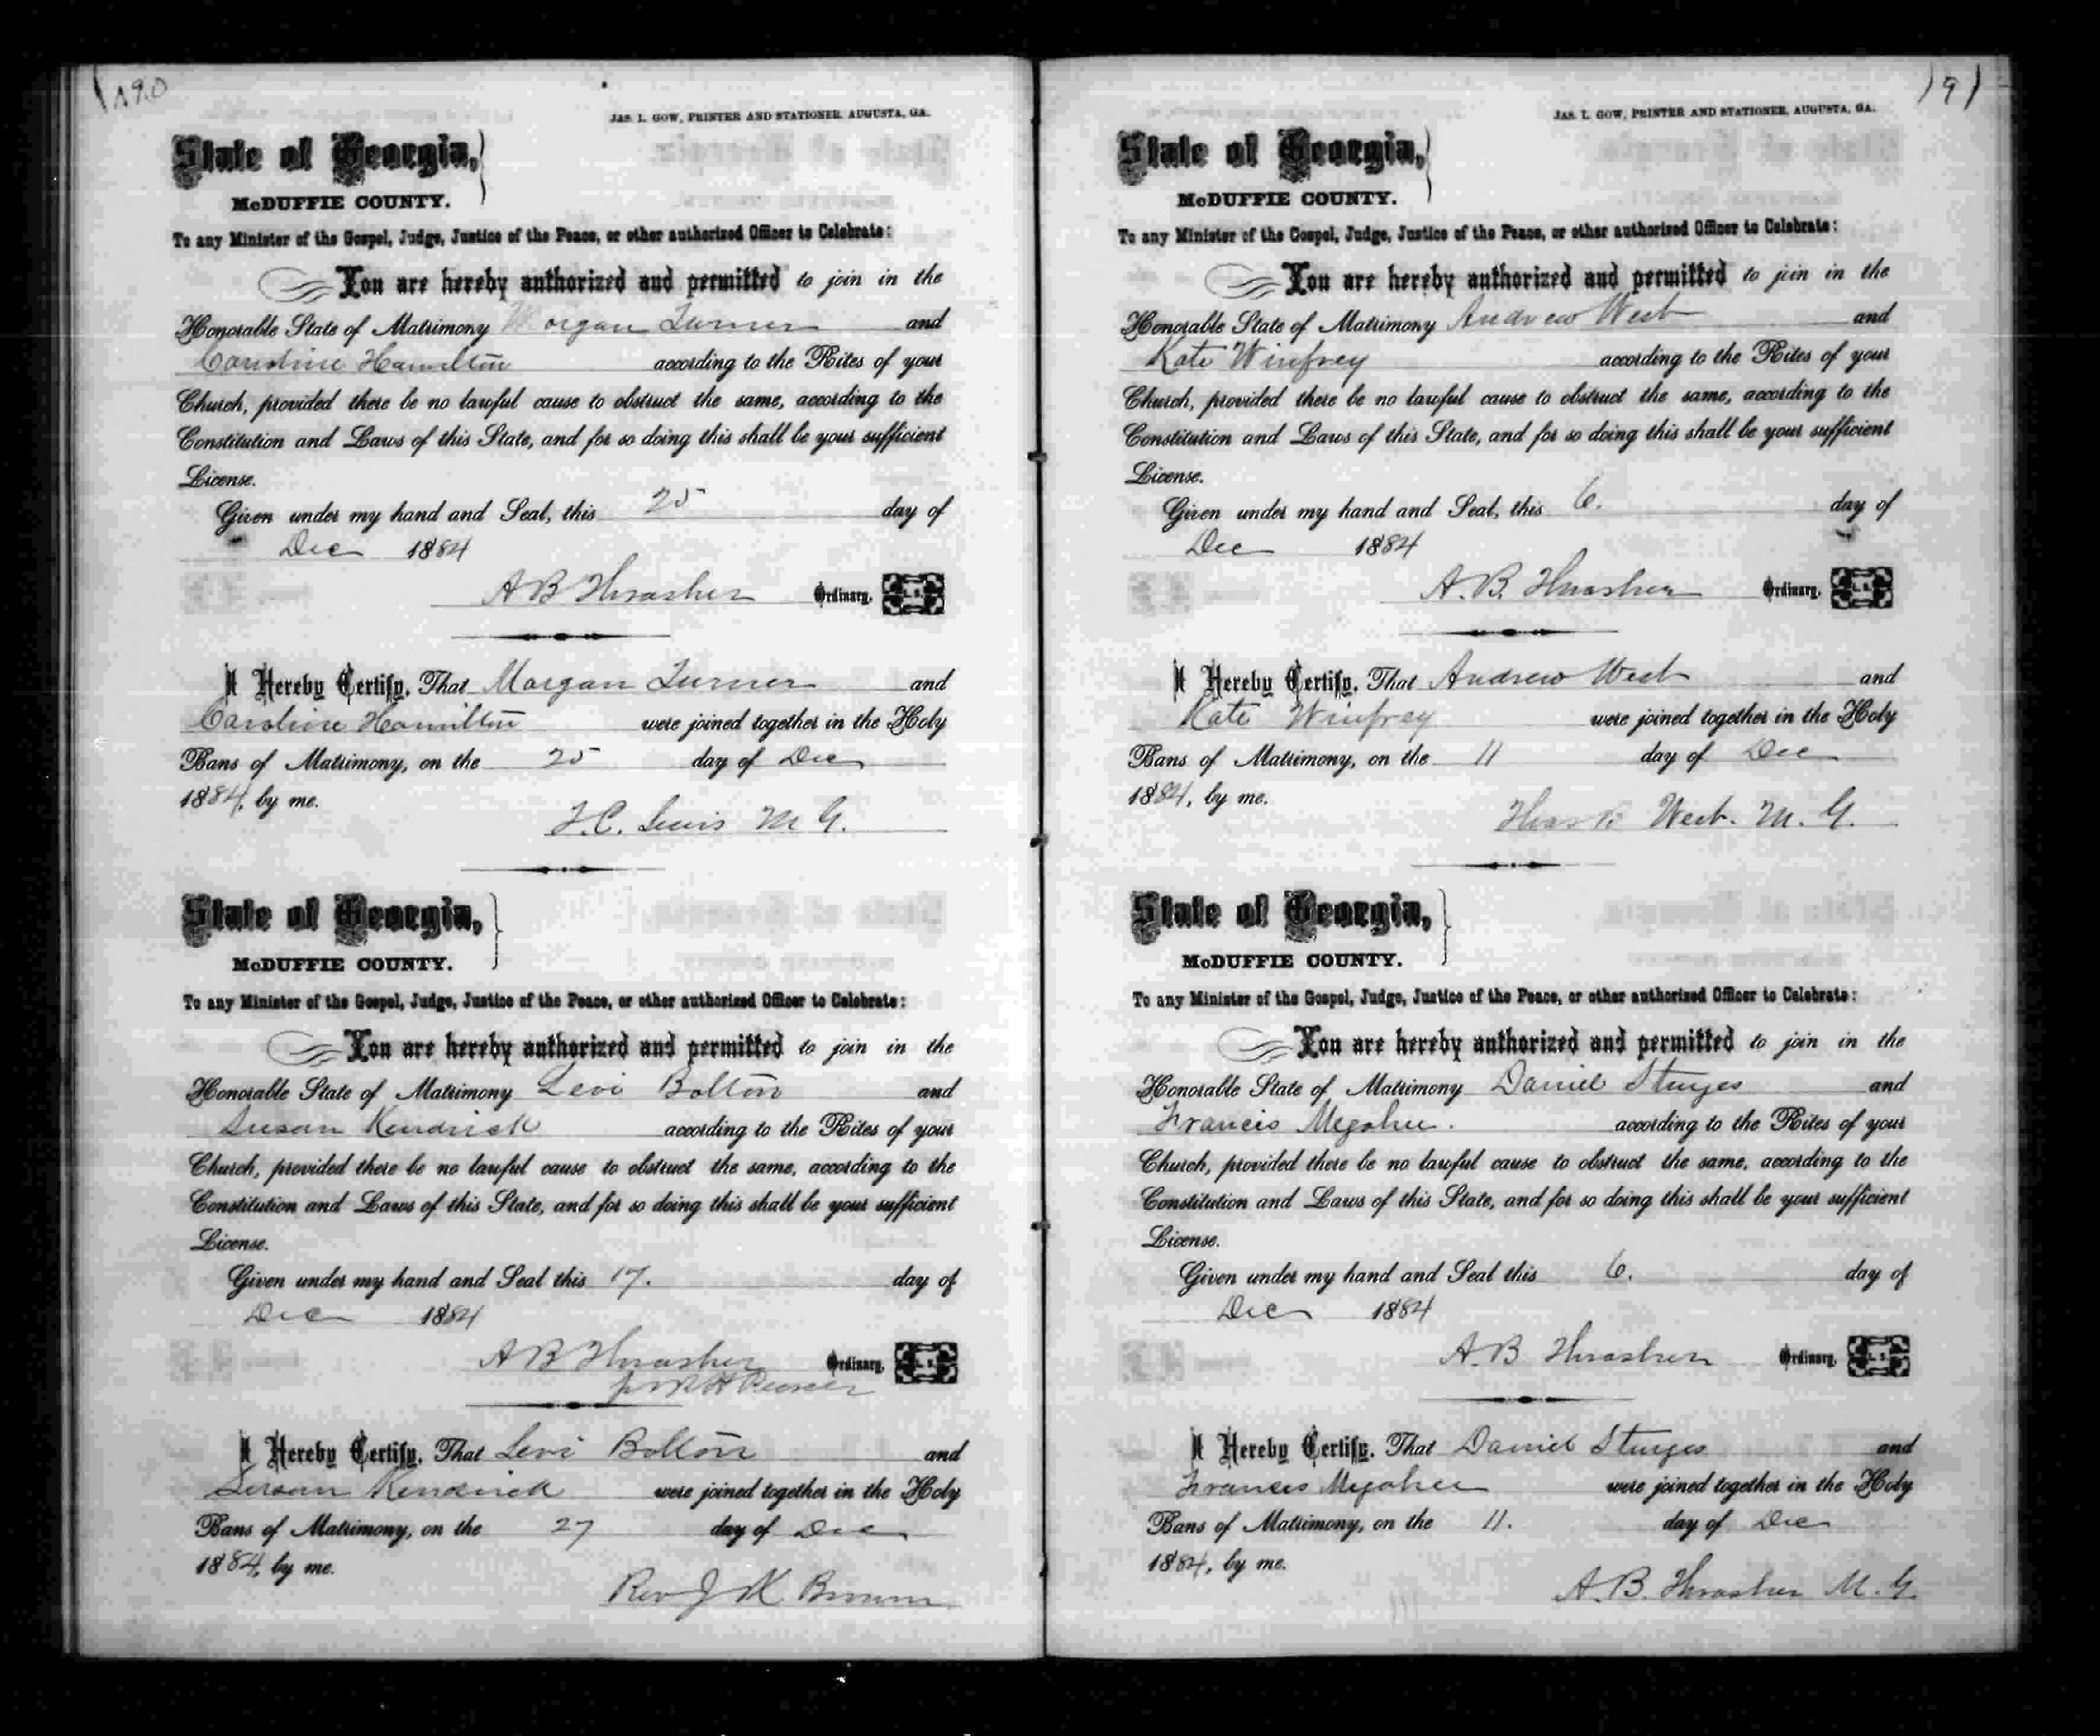 190
JAS. L. GOW, PRINTER AND STATIONER, AUGUSTA, GA.
State of Georgia,
McDUFFIE COUNTY.
To any Minister of the Gospel, Judge, Justice of the Peace, or other authorized Officer to Celebrate:
You are hereby authorized and permitted to join in the
Honorable State of Matrimony Morgan Turner and
Caroline Hamilton according to the Rites of your
Church, provided there be no lawful cause to obstruct the same, according to the
Constitution and Laws of this State, and for so doing this shall be your sufficient
License.
Given under my hand and Seal, this 25 day of
Dec 1884
A B Thrasher Ordinary. L. S.
I Hereby Certify, That Morgan Turner and
Caroline Hamilton were joined together in the Holy
Bans of Matrimony, on the 25 day of Dec
1884, by me.
J. C. Lewis M G.
State of Georgia,
McDUFFIE COUNTY.
To any Minister of the Gospel, Judge, Justice of the Peace, or other authorized Officer to Celebrate:
You are hereby authorized and permitted to join in the
Honorable State of Matrimony Levi Bolton and
Susan Kendrick according to the Rites of your
Church, provided there be no lawful cause to obstruct the same, according to the
Constitution and Laws of this State, and for so doing this shall be your sufficient
License.
Given under my hand and Seal this 17. day of
Dec 1884
A B Thrasher Ordinary. L. S.
I Hereby Certify, That Levi Bolton and
Susan Kendrick were joined together in the Holy
Bans of Matrimony, on the 27 day of Dec
1884, by me.
Rev J K Brown
191
JAS. L. GOW, PRINTER AND STATIONER, AUGUSTA, GA.
State of Georgia,
McDUFFIE COUNTY.
To any Minister of the Gospel, Judge, Justice of the Peace, or other authorized Officer to Celebrate:
You are hereby authorized and permitted to join in the
Honorable State of Matrimony Andrew West and
Kate Winfrey according to the Rites of your
Church, provided there be no lawful cause to obstruct the same, according to the
Constitution and Laws of this State, and for so doing this shall be your sufficient
License.
Given under my hand and Seal, this 6. day of
Dec 1884
A. B. Thrasher Ordinary. L. S.
I Hereby Certify, That Andrew West and
Kate Winfrey were joined together in the Holy
Bans of Matrimony, on the 11 day of Dec
1884, by me.
West. M. G.
State of Georgia,
McDUFFIE COUNTY.
To any Minister of the Gospel, Judge, Justice of the Peace, or other authorized Officer to Celebrate:
You are hereby authorized and permitted to join in the
Honorable State of Matrimony Daniel Sturges and
Francis Megahee. according to the Rites of your
Church, provided there be no lawful cause to obstruct the same, according to the
Constitution and Laws of this State, and for so doing this shall be your sufficient
License.
Given under my hand and Seal this 6. day of
Dec 1884
A. B Thrasher Ordinary. L. S.
I Hereby Certify, That Daniel Sturges and
Frances Megahee were joined together in the Holy
Bans of Matrimony, on the 11. day of Dec
1884, by me.
A. B. Thrasher M. G.